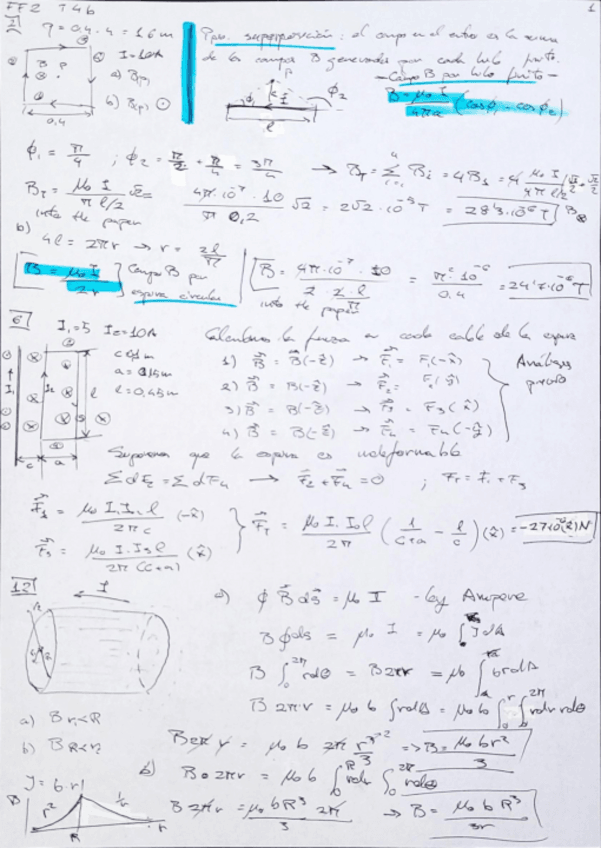 FF2 T4b
1
1 P = 0.4 · 4 = 1.6 m
I = 10A
a) B(P)
b) B(P) ⊙
0,4
Por superposición: el campo en el centro es la suma
de los campos B generados por cada hilo finito.
- Campo B por hilo finito -
B = μ₀ I / 4πa (cos φ₁ - cos φ₂)
φ₁ = π/4 ; φ₂ = π/2 + π/4 = 3π/4 → B_T = Σ B_i = 4B₁ = 4 μ₀ I / 4π l/2 (√2/2 + √2/2)
B_T = μ₀ I / π l/2 √2 = 4π·10⁻⁷ · 10 / π 0,2 √2 = 2√2 · 10⁻⁵ T = 28'3·10⁻⁶ T B⊗
into the paper
b) 4l = 2πr → r = 2l/π
B = μ₀ I / 2r Campo B por espira circular
B = 4π·10⁻⁷ · 10 / 2 · 2·l/π = π² 10⁻⁶ / 0.4 = 24'7·10⁻⁶ T
into the paper
6 I₁=5 I₂=10A
c = 0,1m
a = 0,15m
l = 0,45m
Calculamos la fuerza en cada cable de la espira
1) B = B(-ẑ) → F₁ = F₁(-x̂)
2) B = B(-ẑ) → F₂ = F₂(ŷ)
3) B = B(-ẑ) → F₃ = F₃(x̂)
4) B = B(-ẑ) → F₄ = F₄(-ŷ)
Análisis previo
Suponemos que la espira es indeformable
Σ dF₂ = Σ dF₄ → F₂ + F₄ = 0 ; F_T = F₁ + F₃
F₁ = μ₀ I₁ I₂ l / 2π c (-x̂)
F₃ = μ₀ I₁ I₂ l / 2π (c+a) (x̂)
F_T = μ₀ I₁ I₂ l / 2π (1/c+a - 1/c) (x̂) =
12
I
a) ∮ B ds = μ₀ I - ley Ampere
B ∮ ds = μ₀ I = μ₀ ∫ J dA
B ∫₀^2π r dθ = B 2πr = μ₀ ∫ b r dA
B 2πr = μ₀ b ∫ r dA = μ₀ b ∫₀^r ∫₀^2π r dr r dθ
a) B r₁<R
b) B R<r₂
B 2π r = μ₀ b 2π r³/3 => B = μ₀ b r² / 3
J = b·r
b) B · 2πr = μ₀ b ∫₀^R r dr ∫₀^2π r dθ
B 2π r = μ₀ b R³ 2π / 3 → B = μ₀ b R³ / 3r
B r² 1/r
R r